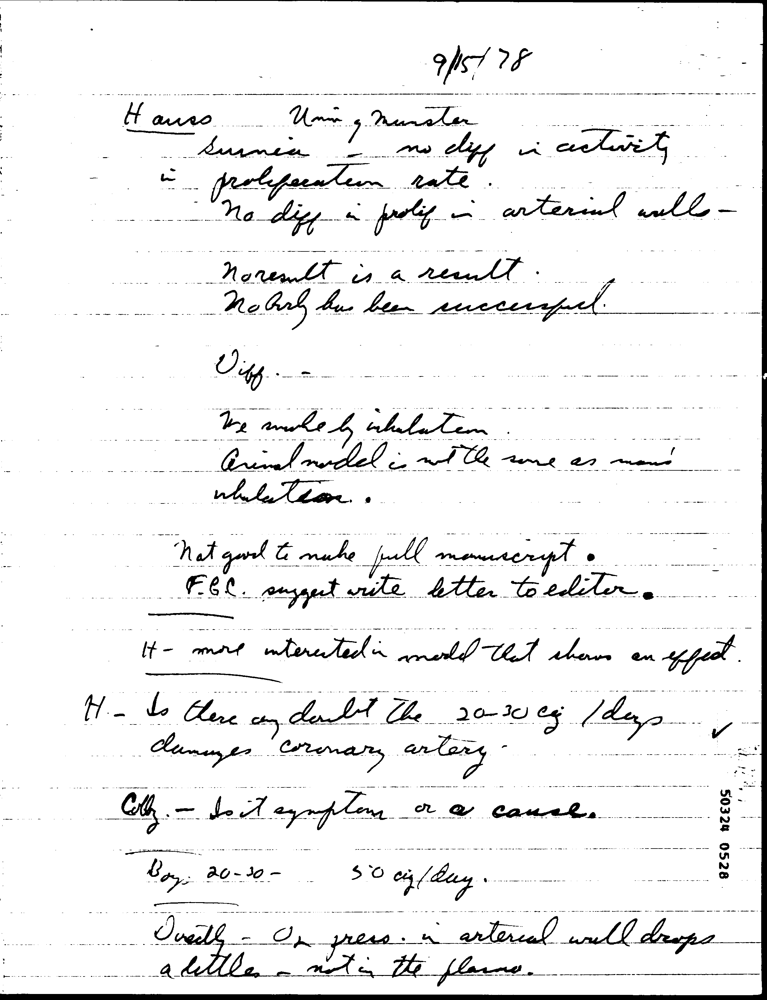 9/15/78
Hauss Univ of Munster
- no diff in activity
in proliferation rate.
No diff in prolif in arterial walls -
No result is a result.
Nobody has been successful.
Diff. -
We smoke by inhalation.
Animal model is not the same as man's
inhalation.
Not good to make full manuscript.
suggest write letter to editor.
H - more interested in model that shows an effect.
H - Is there any doubt the 20-30 cig /days ✓
damages coronary artery.
- Is it symptom or a cause.
20-30 - 50 cig/day.
- press. in arterial wall drops
a little - not in the plasma.
50324 0528